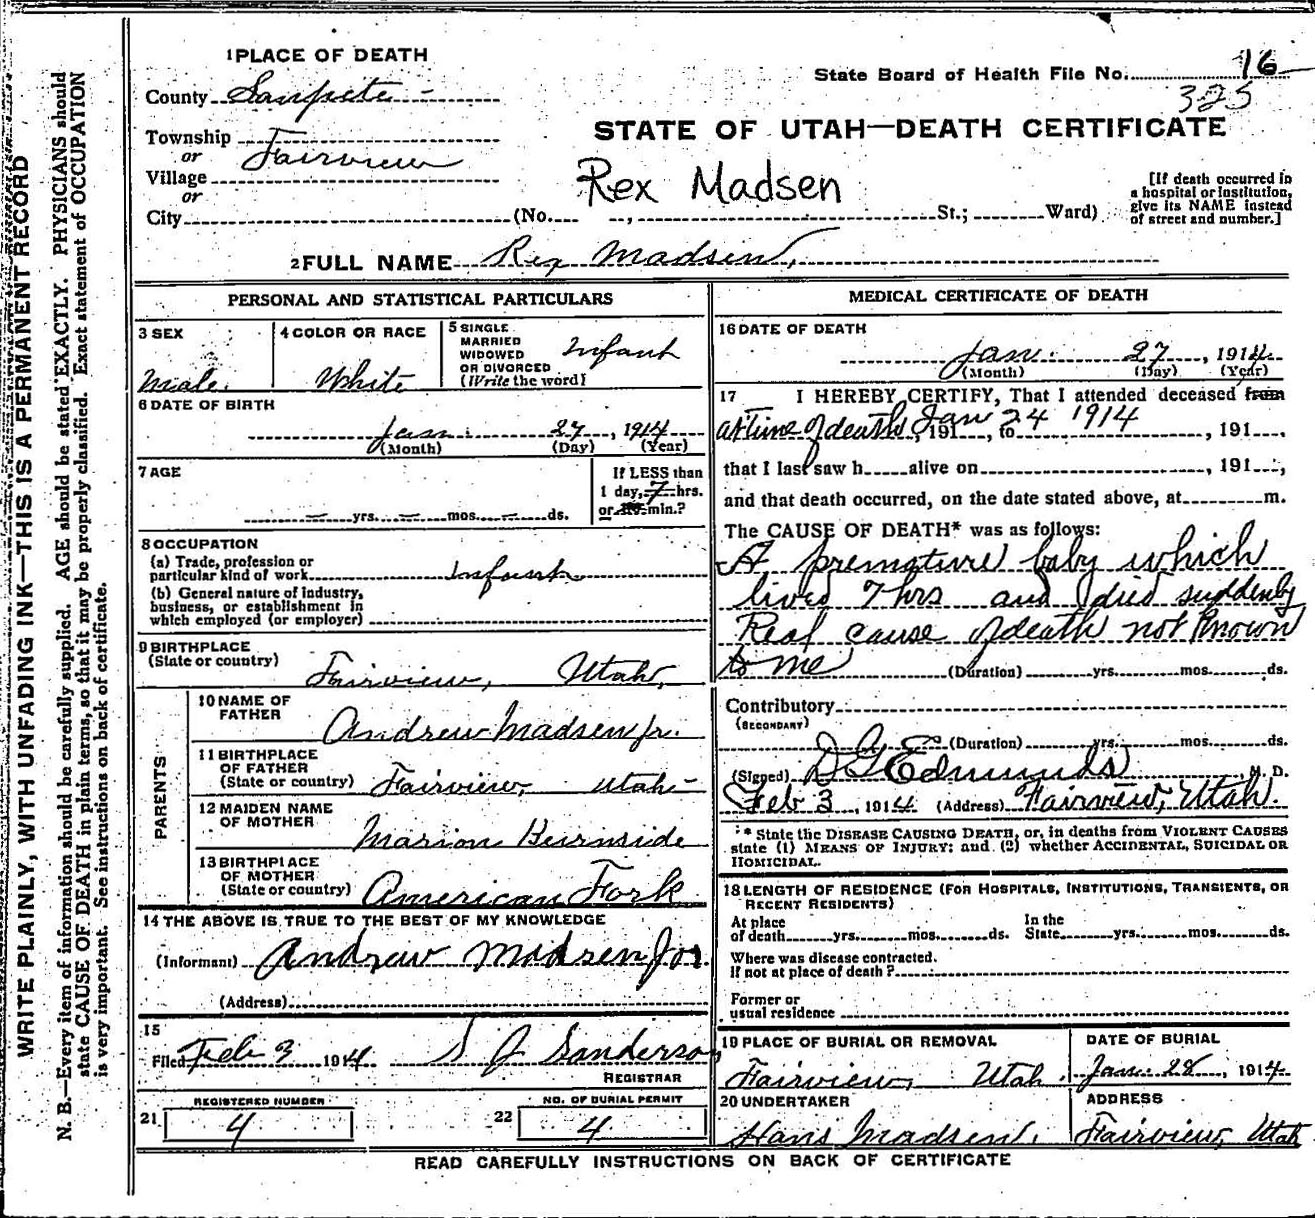 1 PLACE OF DEATH
State Board of Health File No. 16
325
County Sanpete
STATE OF UTAH—DEATH CERTIFICATE
Township
or Fairview
Village
or
City (No. , St.; Ward)
Rex Madsen
[If death occurred in
a hospital or institution,
give its NAME instead
of street and number.]
2 FULL NAME Rex Madsen,
PERSONAL AND STATISTICAL PARTICULARS
3 SEX
Male.
4 COLOR OR RACE
White
5 SINGLE
MARRIED
WIDOWED
OR DIVORCED
(Write the word)
Infant
6 DATE OF BIRTH
Jan. 27, 1914
(Month) (Day) (Year)
7 AGE
— yrs. — mos. — ds.
If LESS than
1 day, 7 hrs.
or min.?
8 OCCUPATION
(a) Trade, profession or
particular kind of work Infant
(b) General nature of industry,
business, or establishment in
which employed (or employer)
9 BIRTHPLACE
(State or country)
Fairview, Utah,
PARENTS
10 NAME OF
FATHER
Andrew Madsen jr.
11 BIRTHPLACE
OF FATHER
(State or country) Fairview, Utah
12 MAIDEN NAME
OF MOTHER
Marion Burnside
13 BIRTHPLACE
OF MOTHER
(State or country) American Fork
14 THE ABOVE IS TRUE TO THE BEST OF MY KNOWLEDGE
(Informant) Andrew Madsen Jor.
(Address)
15
Filed Feb 3 1914 S J Sanderson
REGISTRAR
21 REGISTERED NUMBER
4
22 NO. OF BURIAL PERMIT
4
MEDICAL CERTIFICATE OF DEATH
16 DATE OF DEATH
Jan. 27, 1914.
(Month) (Day) (Year)
17 I HEREBY CERTIFY, That I attended deceased from
at time of death, Jan 24 1914
191 , to , 191 ,
that I last saw h alive on , 191 ,
and that death occurred, on the date stated above, at m.
The CAUSE OF DEATH* was as follows:
A premature baby which
lived 7 hrs and died suddenly
Real cause of death not known
to me (Duration) yrs. mos. ds.
Contributory
(SECONDARY)
(Duration) yrs. mos. ds.
(Signed) D G Edmunds, M. D.
Feb 3, 1914 (Address) Fairview, Utah.
* State the DISEASE CAUSING DEATH, or, in deaths from VIOLENT CAUSES
state (1) MEANS OF INJURY; and (2) whether ACCIDENTAL, SUICIDAL OR
HOMICIDAL.
18 LENGTH OF RESIDENCE (FOR HOSPITALS, INSTITUTIONS, TRANSIENTS, OR
RECENT RESIDENTS)
At place
of death yrs. mos. ds.
In the
State yrs. mos. ds.
Where was disease contracted.
if not at place of death?
Former or
usual residence
19 PLACE OF BURIAL OR REMOVAL
Fairview, Utah.
DATE OF BURIAL
Jan. 28, 1914
20 UNDERTAKER
Hans Madsen.
ADDRESS
Fairview, Utah
READ CAREFULLY INSTRUCTIONS ON BACK OF CERTIFICATE
WRITE PLAINLY, WITH UNFADING INK—THIS IS A PERMANENT RECORD
N. B.—Every item of information should be carefully supplied. AGE should be stated EXACTLY. PHYSICIANS should
state CAUSE OF DEATH in plain terms, so that it may be properly classified. Exact statement of OCCUPATION
is very important. See instructions on back of certificate.